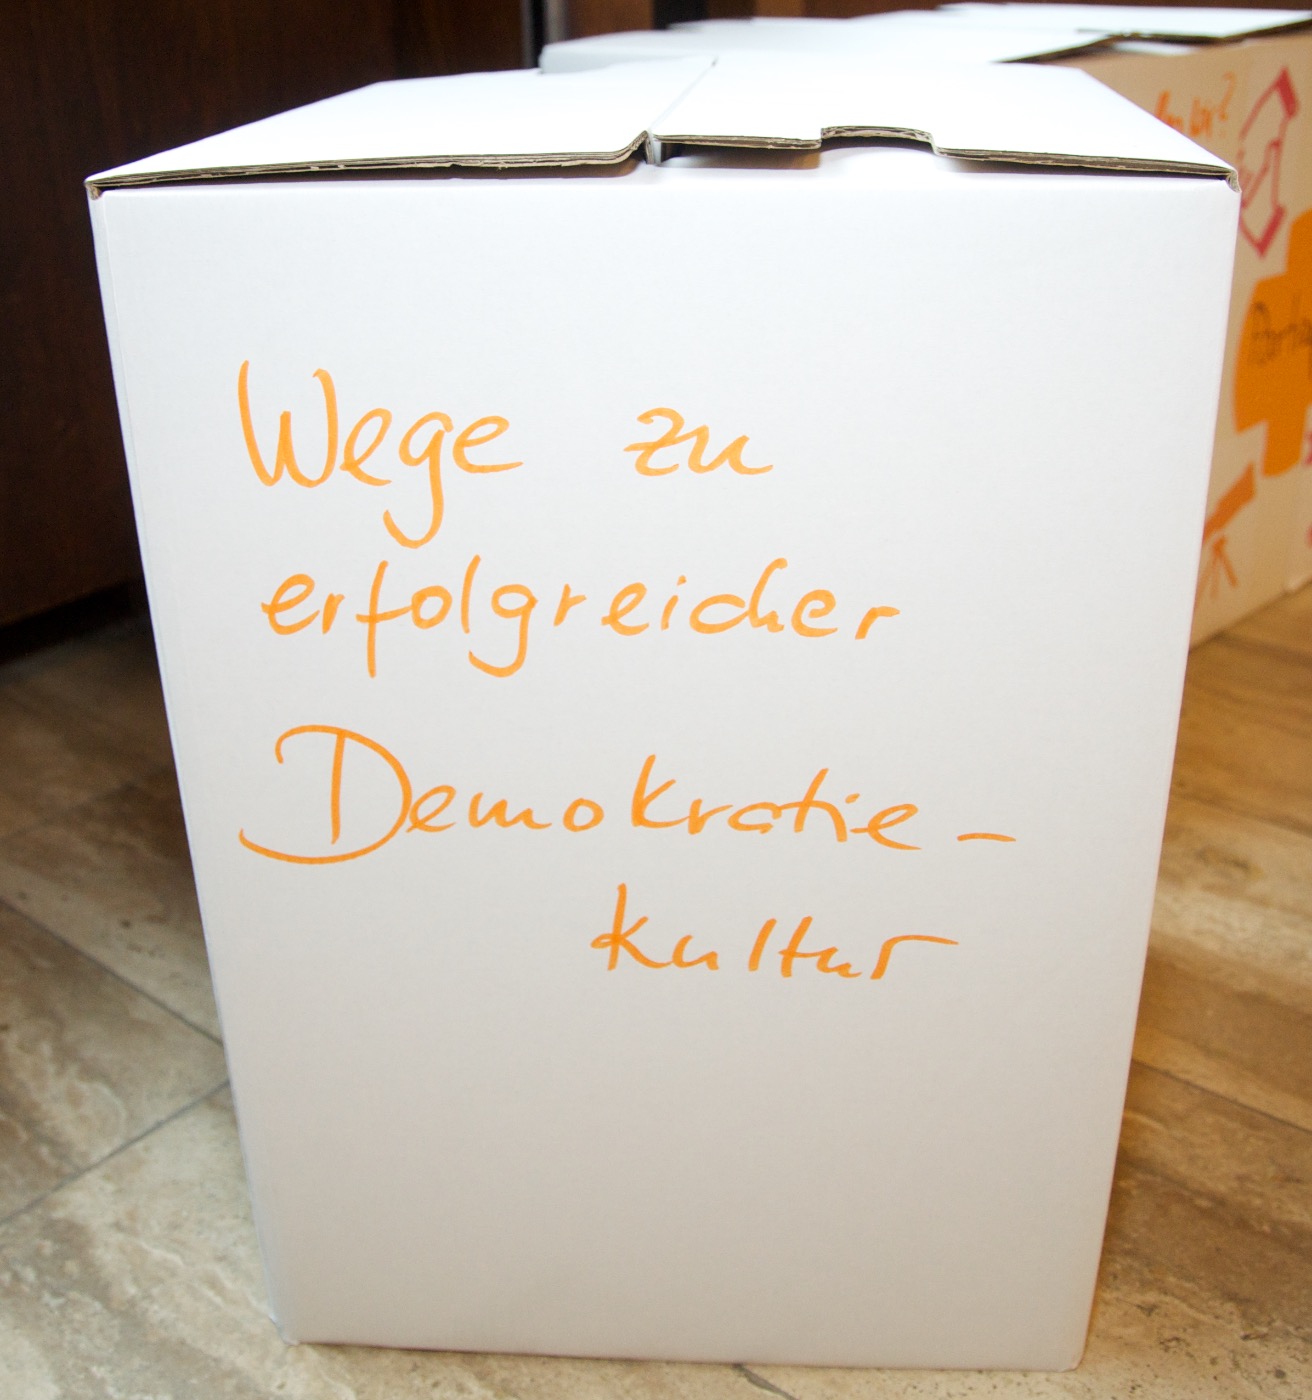 Wege zu
erfolgreicher
Demokratie-
kultur